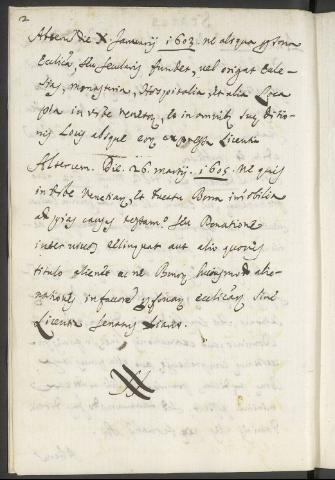 2
die X Januarij 1603 ne aliqua psona
Ecclica, seu secularis fundet, vel erigat Eccle-
sias, monasteria, Hospitalia, et alia Loca
pia in Urbe Veneta, et in omnib suę ditio-
nis Locis absque expressa Licentia
Alteram. Die. 26. martij. 1605. Ne quis
in Urbe Venetiar, et Bona im̄obilia
ad pias causas testam.º seu Donatione
inter vivos relinquat aut alio quovis
titulo alienet ac ne Bonor huiusmodi alie-
nationes in favore psonar ecclicar sine
Licentia Senatus fiant.